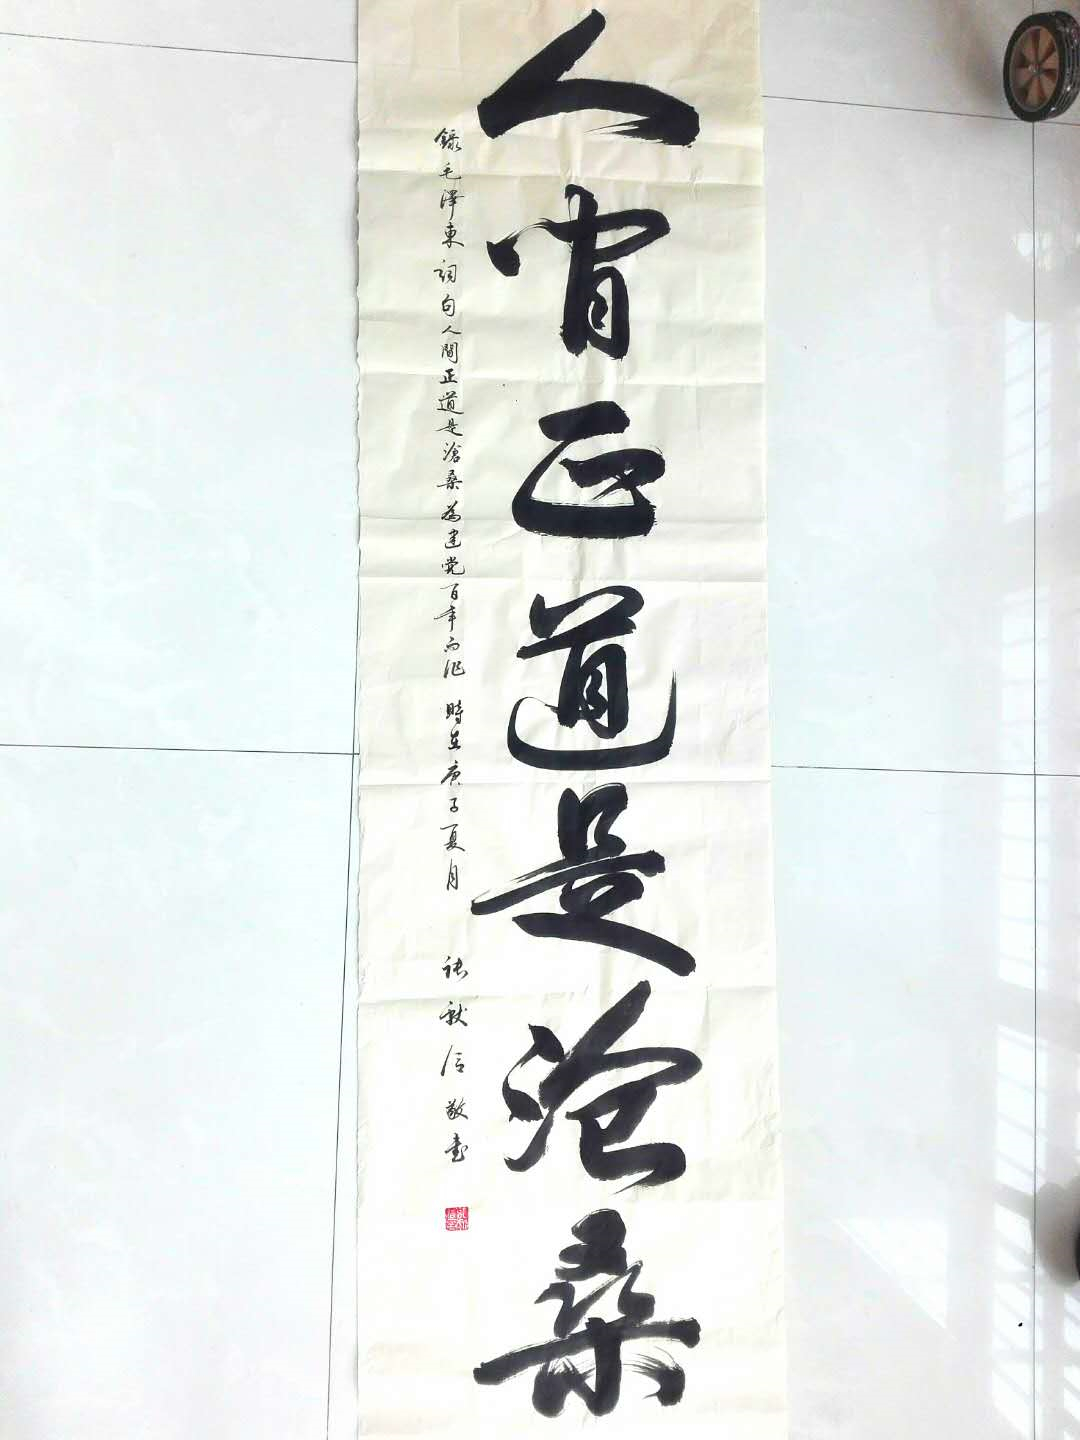 人間正道是滄桑
錄毛澤東詞句人間正道是滄桑為建党百年而作 時在庚子夏月 敬書